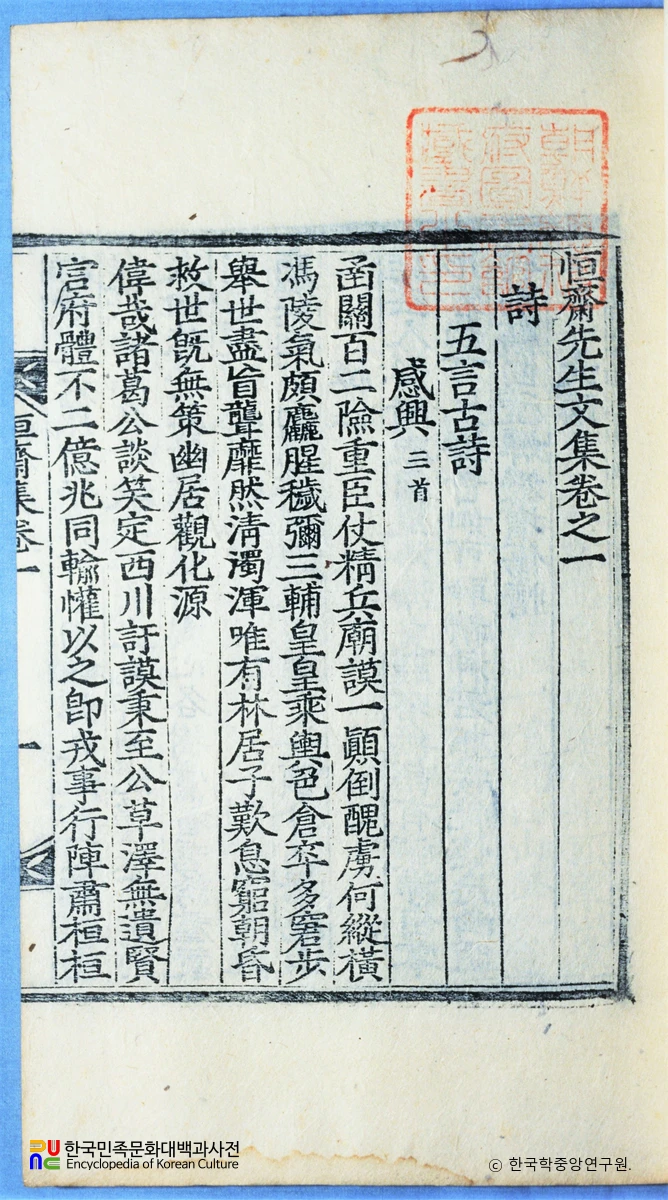 恒齋先生文集卷之一
詩
五言古詩
感興 三首
函關百二險重臣仗精兵廟謨一顚倒醜虜何縱橫
馮陵氣頗麤腥穢彌三輔皇皇乘輿邑倉卒多窘步
舉世盡盲聾靡然淸濁渾唯有林居子歎息窮朝昏
救世旣無策幽居觀化源
偉哉諸葛公談笑定西川訏謨秉至公草澤無遺賢
宮府體不二億兆同輸懽以之卽戎事行陣肅桓桓
恒齋集卷一
一
한국민족문화대백과사전
Encyclopedia of Korean Culture
ⓒ 한국학중앙연구원.